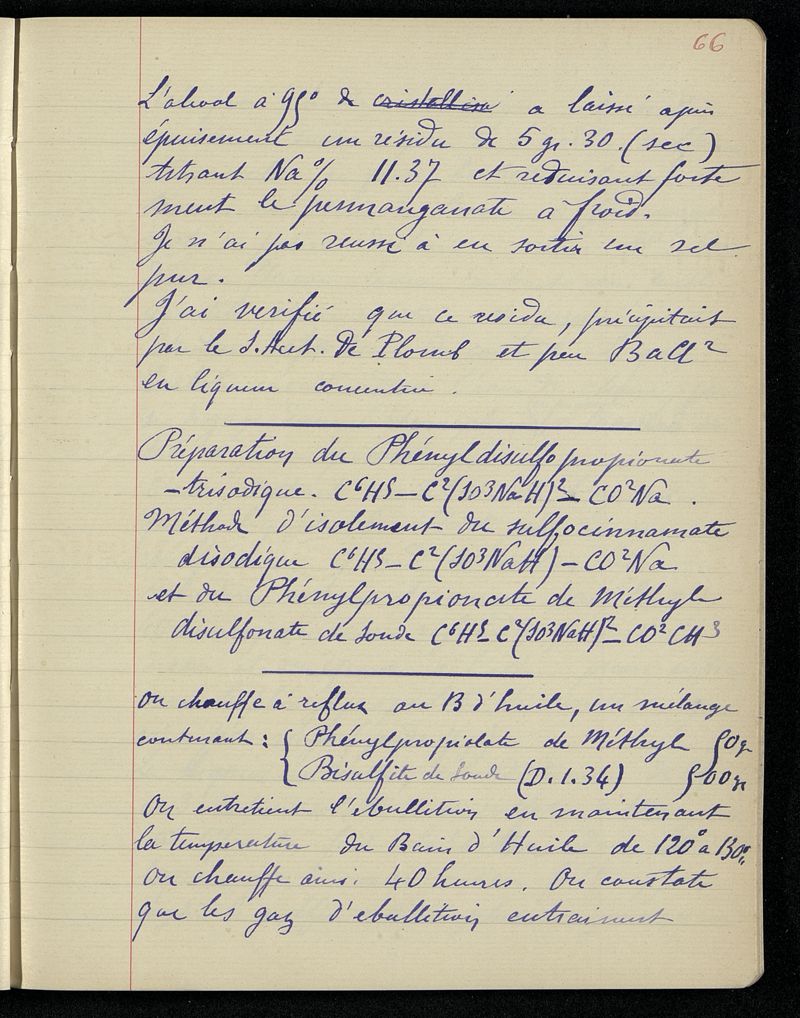 66
L'alcool à 95° de cristallisé a laissé après
épuisement un résidu de 5 gr. 30. (sec)
titrant Na % 11.37 et réduisant forte
ment le permanganate à froid.
Je n'ai pas reussi à en sortir un sel
pur.
J'ai verifié que ce residu, précipitait
par le S. Acét. de Plomb et peu BaCl²
en liqueur concentrée.
Préparation du Phényldisulfopropionate
-trisodique. C⁶H⁵ – C²(SO³NaH)² – CO²Na.
Méthode d'isolement du sulfocinnamate
disodique C⁶H⁵ – C²(SO³NaH) – CO²Na
et du Phénylpropionate de Méthyle
disulfonate de Soude C⁶H⁵ – C²(SO³NaH)² – CO²CH³
On chauffe à reflux au B d'huile, un mélange
contenant : { Phénylpropiolate de Méthyle 50 gr
Bisulfite de Soude (D. 1.34) 500 gr
On entretient l'ebullition en maintenant
la temperature du Bain d'Huile de 120° à 130°.
On chauffe ainsi 40 heures. On constate
que les gaz d'ebullition entrainent